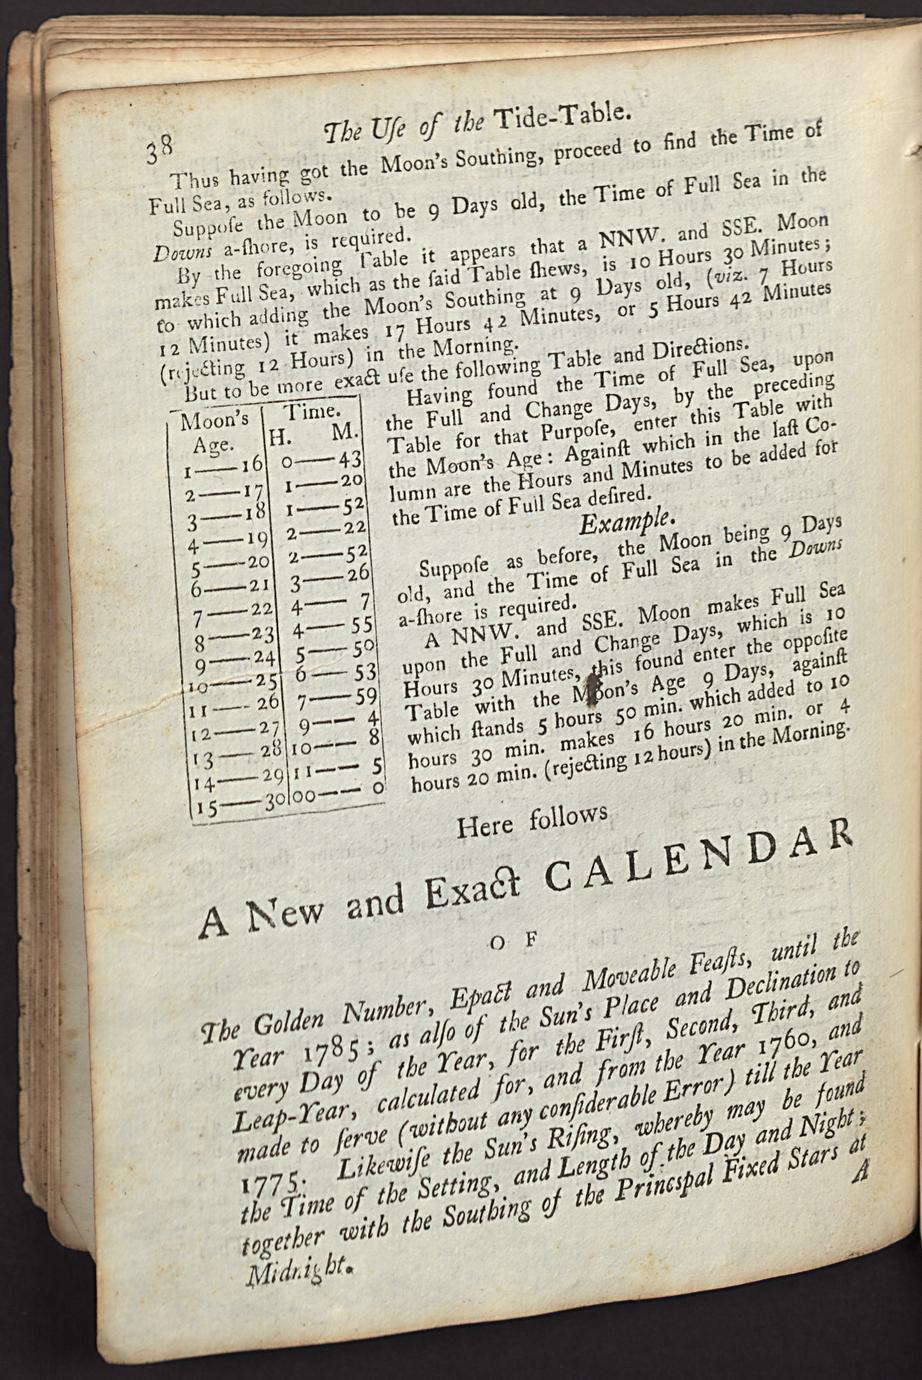 38
The Uſe of the Tide-Table.
Thus having got the Moon's Southing, proceed to find the Time of
Full Sea, as follows.
Suppoſe the Moon to be 9 Days old, the Time of Full Sea in the
Downs a-ſhore, is required.
By the foregoing Table it appears that a NNW. and SSE. Moon
makes Full Sea, which as the ſaid Table ſhews, is 10 Hours 30 Minutes;
to which adding the Moon's Southing at 9 Days old, (viz. 7 Hours
12 Minutes) it makes 17 Hours 42 Minutes, or 5 Hours 42 Minutes
(rejecting 12 Hours) in the Morning.
But to be more exact uſe the following Table and Directions.
Moon's Age. | Time. H. M.
1—16 | 0—43
2—17 | 1—20
3—18 | 1—52
4—19 | 2—22
5—20 | 2—52
6—21 | 3—26
7—22 | 4—7
8—23 | 4—55
9—24 | 5—50
10—25 | 6—53
11—26 | 7—59
12—27 | 9—4
13—28 | 10—8
14—29 | 11—5
15—30 | 00—0
Having found the Time of Full Sea, upon
the Full and Change Days, by the preceding
Table for that Purpoſe, enter this Table with
the Moon's Age: Againſt which in the laſt Co-
lumn are the Hours and Minutes to be added for
the Time of Full Sea deſired.
Example.
Suppoſe as before, the Moon being 9 Days
old, and the Time of Full Sea in the Downs
a-ſhore is required.
A NNW. and SSE. Moon makes Full Sea
upon the Full and Change Days, which is 10
Hours 30 Minutes, this found enter the oppoſite
Table with the Moon's Age 9 Days, againſt
which ſtands 5 hours 50 min. which added to 10
hours 30 min. makes 16 hours 20 min. or 4
hours 20 min. (rejecting 12 hours) in the Morning.
Here follows
A New and Exact CALENDAR
OF
The Golden Number, Epact and Moveable Feaſts, until the
Year 1785; as alſo of the Sun's Place and Declination to
every Day of the Year, for the Firſt, Second, Third, and
Leap-Year, calculated for, and from the Year 1760, and
made to ſerve (without any conſiderable Error) till the Year
1775. Likewiſe the Sun's Riſing, whereby may be found
the Time of the Setting, and Length of the Day and Night;
together with the Southing of the Princspal Fixed Stars at
Midnight.
A